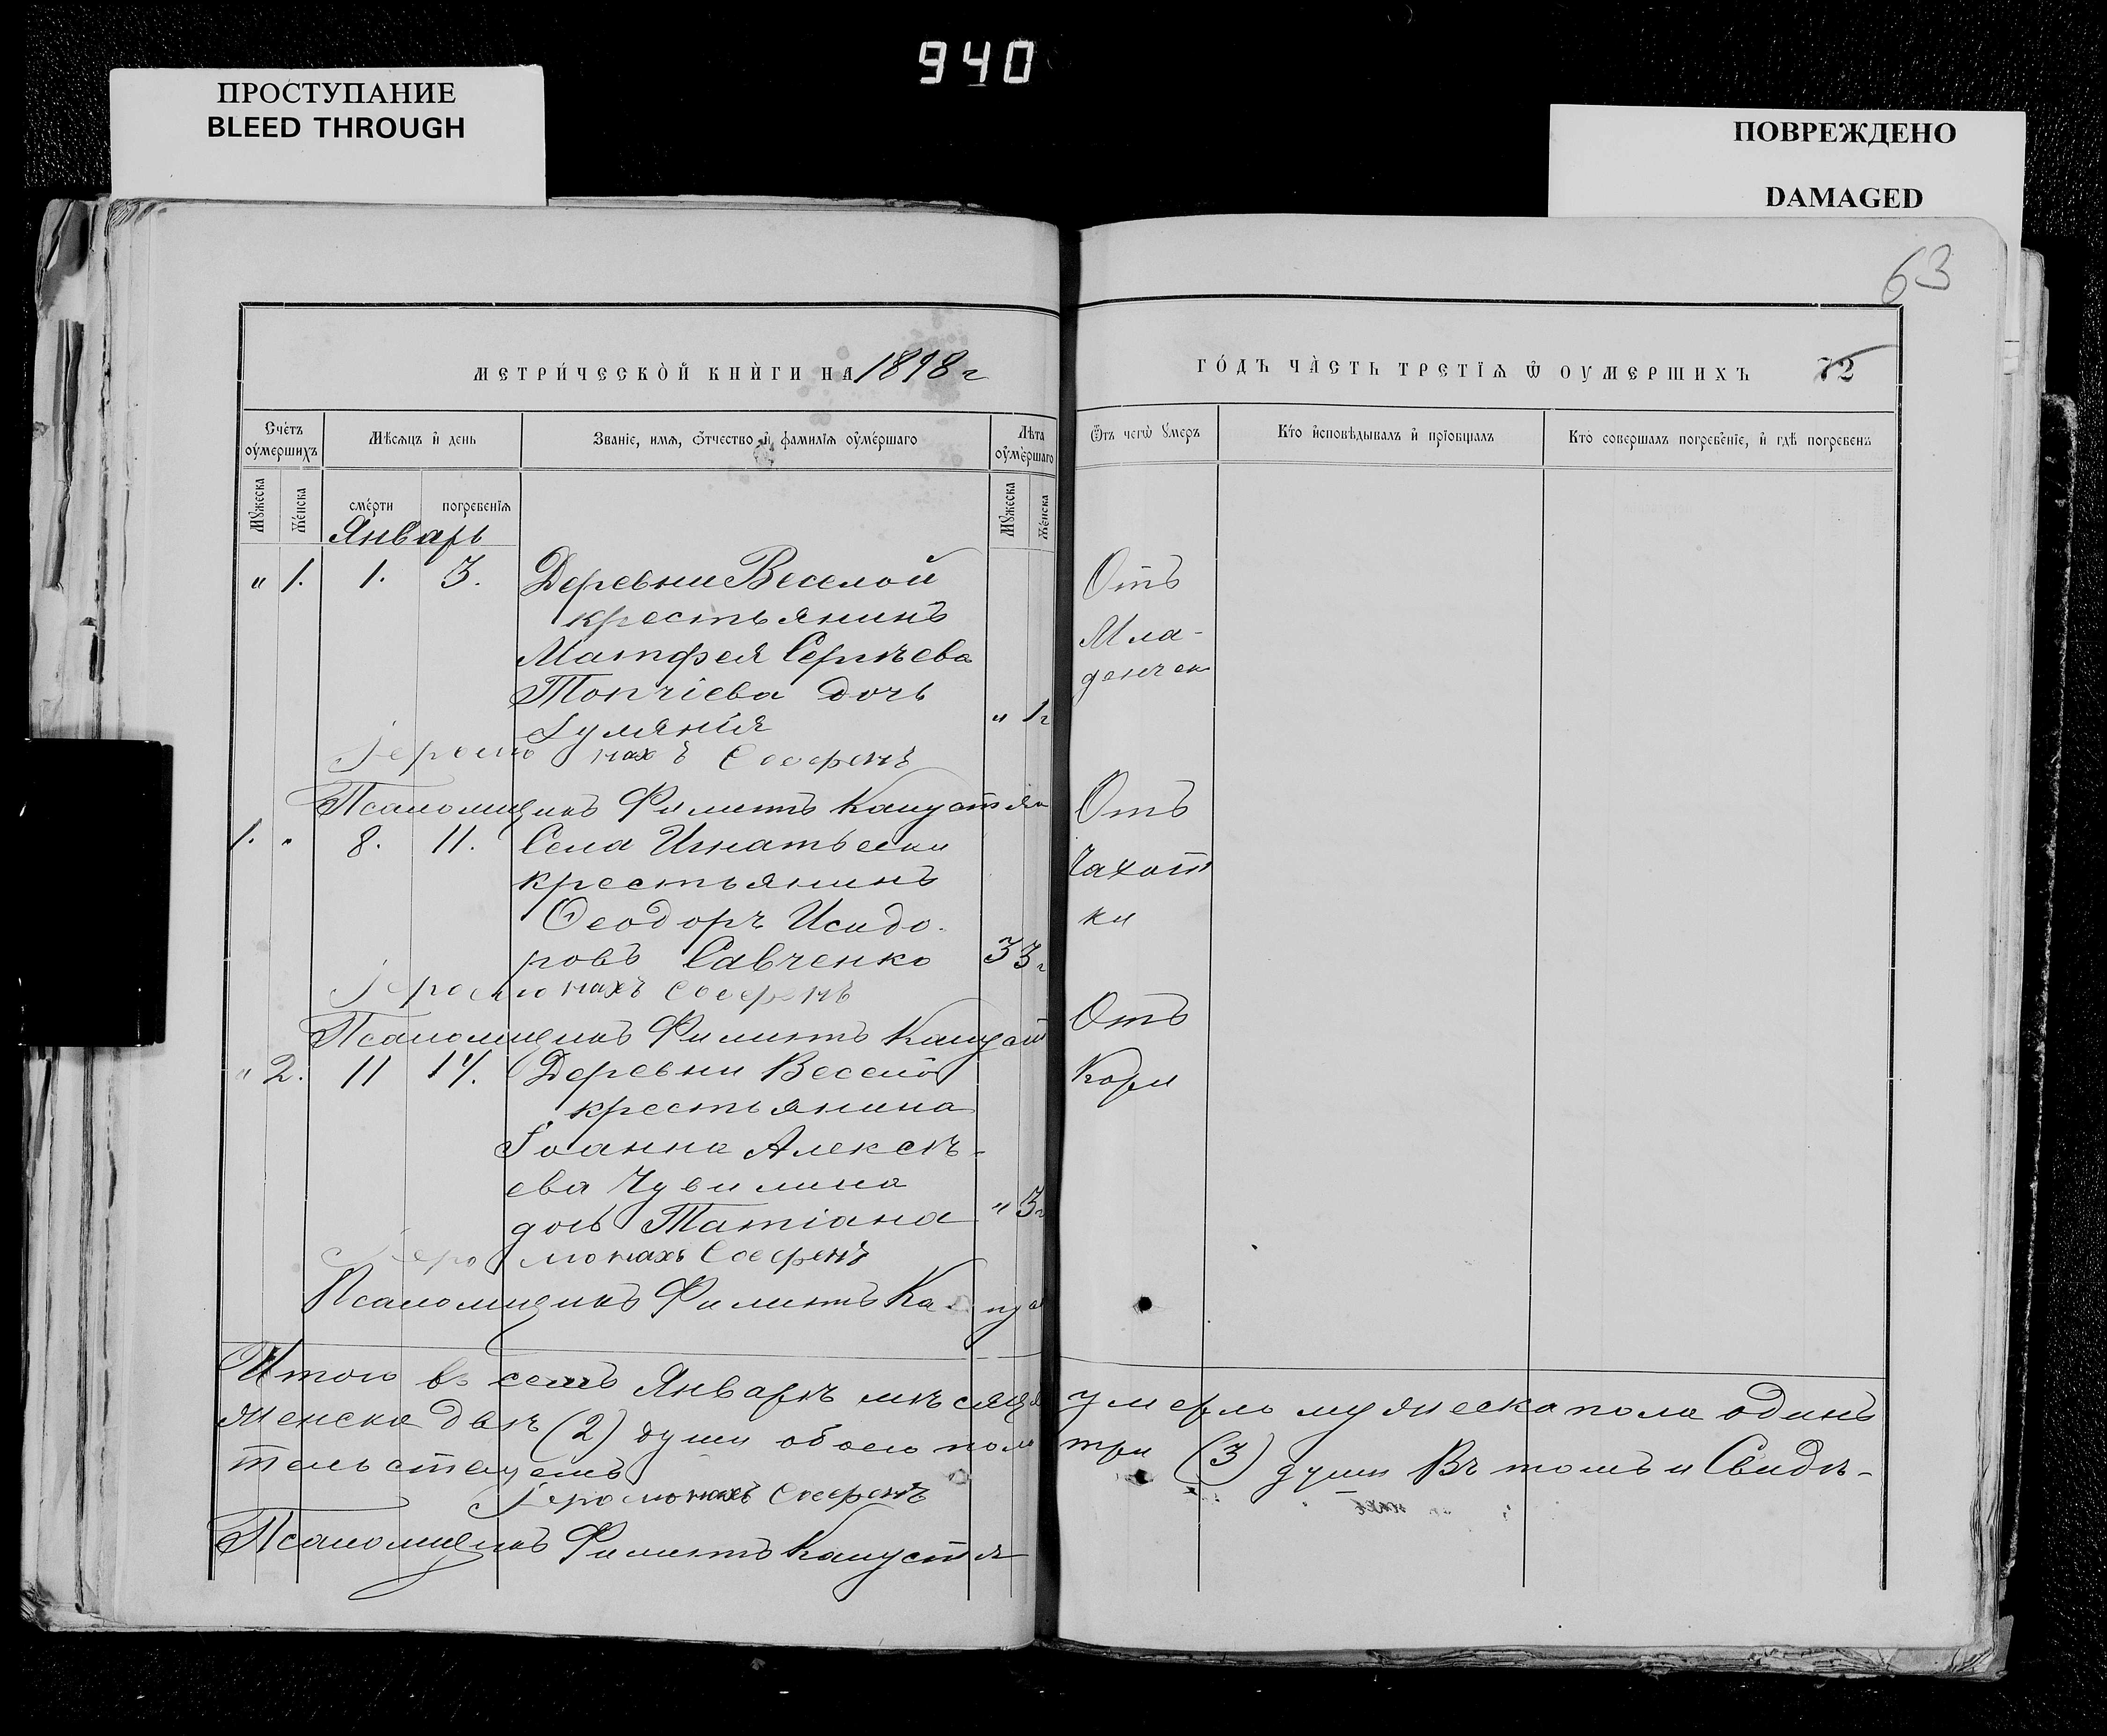 940
ПРОСТУПАНИЕ
BLEED THROUGH
ПОВРЕЖДЕНО
DAMAGED
63
МЕТРИ́ЧЕСКОЙ КНИ́ГИ НА 1898 г
ГО́ДЪ ЧА́СТЬ ТРЕТІѦ Ѿ ОУМЕРШИХЪ 72
Счетъ оумершихъ
Мѣсяцъ и день
Званіе, имя, ѿчество и фамилія оумершаго
Лѣта оумершаго
Ѿтъ чегѡ умеръ
Кто исповѣдывалъ и пріобщалъ
Кто совершалъ погребеніе, и гдѣ погребенъ
Мужеска
Женска
смерти
погребенія
Мужеска
Женска
Январь
" 1. 1. 3. Деревни Веселой
крестьянинъ
Матфея Сергѣева
Топчіева дочь
" 1 г
Отъ
Мла-
денчек
Іеромонахъ
Псаломщикъ Филиппъ Капустян
1. " 8. 11. Села Игнатьевки
крестьянинъ
Ѳеодоръ Исидо-
ровъ Савченко 33 г
Отъ
Чахот
ки
Іеромонахъ
Псаломщикъ Филиппъ Капуст
" 2. 11 14. Деревни Веселой
крестьянина
Іоанна Алексѣ-
ева Чувилина
дочь Татіана " 3 г
Отъ
Кори
Іеромонахъ
Псаломщикъ Филиппъ Капус
Итого въ семъ Январѣ мѣсяцѣ умерло мужеска пола одинъ
женска двѣ (2) души обоего пола три (3) души Въ томъ и Свидѣ-
тельствуемъ
Іеромонахъ
Псаломщикъ Филиппъ Капустян